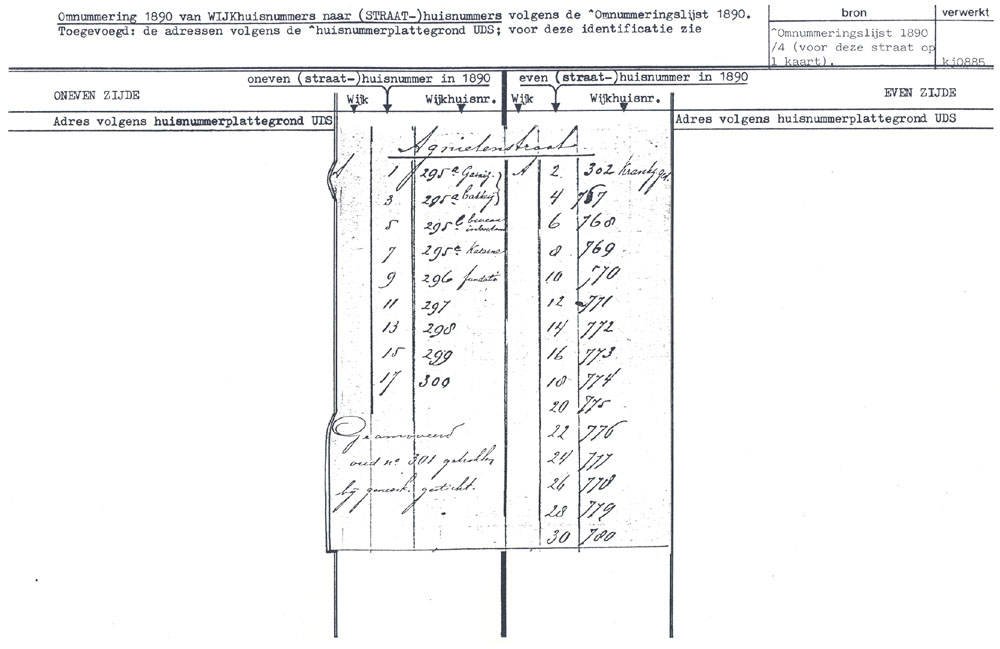 Omnummering 1890 van WIJKhuisnummers naar (STRAAT-)huisnummers volgens de ^Omnummeringslijst 1890.
Toegevoegd: de adressen volgens de ^huisnummerplattegrond UDS; voor deze identificatie zie
bron
verwerkt
^Omnummeringslijst 1890
/4 (voor deze straat op
1 kaart).
kj0885
oneven (straat-)huisnummer in 1890
even (straat-)huisnummer in 1890
ONEVEN ZIJDE
Wijk
Wijkhuisnr.
Wijk
Wijkhuisnr.
EVEN ZIJDE
Adres volgens huisnummerplattegrond UDS
Adres volgens huisnummerplattegrond UDS
Agnietenstraat
1 295a
A 2 302
3 295a
4 767
5 295b bureau
6 768
7 295c Kazerne
8 769
9 296 fundatie
10 770
11 297
12 771
13 298
14 772
15 299
16 773
17 300
18 774
20 775
Geamoveerd
22 776
oud no 301 getrokken
24 777
bij gemeek. gesticht.
26 778
28 779
30 780